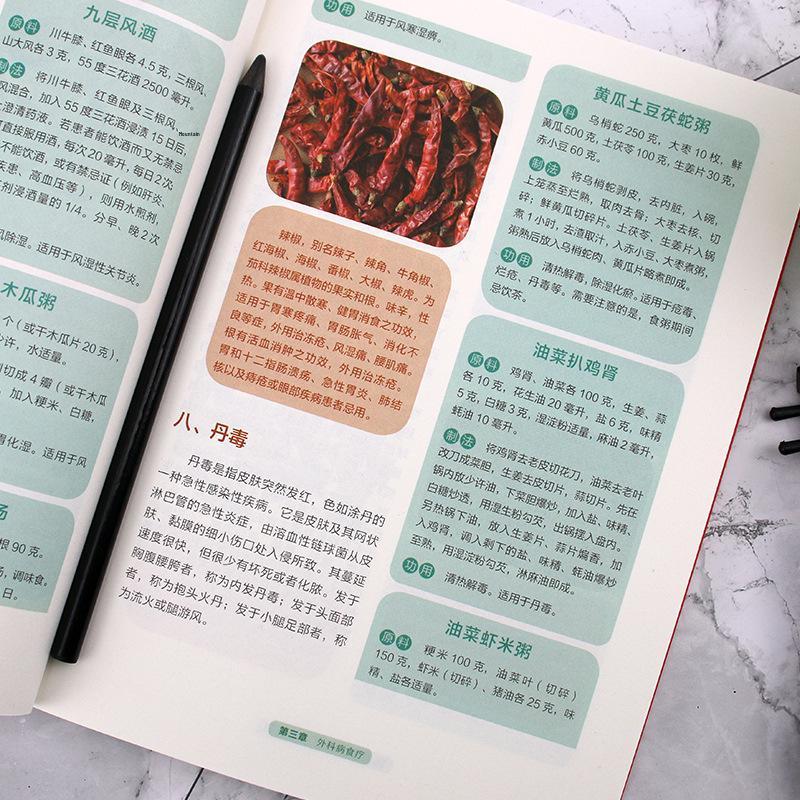 九层风酒
原料 川牛膝、红鱼眼各 4.5 克，三根风、
山大风各 3 克，55 度三花酒 2500 毫升。
制法 将川牛膝、红鱼眼及三根风、
风混合，加入 55 度三花酒浸渍 15 日后，
上澄清药液。若患者能饮酒而又无禁忌
可直接服用酒，每次 20 毫升，每日 2 次
不能饮酒，或有禁忌证（例如肝炎、
疾患、高血压等），则用水煎剂，
剂浸酒量的 1/4。分早、晚 2 次
风除湿。适用于风湿性关节炎。
Mountain
木瓜粥
个（或干木瓜片 20 克），
少许，水适量。
切成 4 瓣（或干木瓜
加入粳米、白糖，
胃化湿。适用于风
汤
根 90 克。
汤，调味食。
日。
功用 适用于风寒湿痹。
辣椒，别名辣子、辣角、牛角椒、
红海椒、海椒、番椒、大椒、辣虎。为
茄科辣椒属植物的果实和根。味辛，性
热。果有温中散寒、健胃消食之功效，
适用于胃寒疼痛、胃肠胀气、消化不
良等症，外用治冻疮、风湿痛、腰肌痛。
根有活血消肿之功效，外用治冻疮。
胃和十二指肠溃疡、急性胃炎、肺结
核以及痔疮或眼部疾病患者忌用。
八、丹毒
丹毒是指皮肤突然发红，色如涂丹的
一种急性感染性疾病。它是皮肤及其网状
淋巴管的急性炎症，由溶血性链球菌从皮
肤、黏膜的细小伤口处入侵所致。其蔓延
速度很快，但很少有坏死或者化脓。发于
胸腹腰胯者，称为内发丹毒；发于头面部
者，称为抱头火丹；发于小腿足部者，称
为流火或腿游风。
黄瓜土豆茯蛇粥
原料 乌梢蛇 250 克，大枣 10 枚，鲜
黄瓜 500 克，土茯苓 100 克，生姜片 30 克，
赤小豆 60 克。
制法 将乌梢蛇剥皮，去内脏，入碗，
上笼蒸至烂熟，取肉去骨；大枣去核、切
碎；鲜黄瓜切碎片。土茯苓、生姜片入锅
煮 1 小时，去渣取汁，入赤小豆、大枣煮粥，
粥熟后放入乌梢蛇肉、黄瓜片略煮即成。
功用 清热解毒，除湿化瘀。适用于疮毒、
烂疮、丹毒等。需要注意的是，食粥期间
忌饮茶。
油菜扒鸡肾
原料 鸡肾、油菜各 100 克，生姜、蒜
各 10 克，花生油 20 毫升，盐 6 克，味精
5 克，白糖 3 克，湿淀粉适量，麻油 2 毫升，
蚝油 10 毫升。
制法 将鸡肾去老皮切花刀，油菜去老叶
改刀成菜胆，生姜去皮切片，蒜切片。先在
锅内放少许油，下菜胆爆炒，加入盐、味精、
白糖炒透，用湿生粉勾芡，出锅摆入盘内。
另热锅下油，放入生姜片、蒜片煸香，加
入鸡肾，调入剩下的盐、味精、蚝油爆炒
至熟，用湿淀粉勾芡，淋麻油即成。
功用 清热解毒。适用于丹毒。
油菜虾米粥
原料 粳米 100 克，油菜叶（切碎）
150 克，虾米（切碎）、猪油各 25 克，味
精、盐各适量。
第三章 外科病食疗